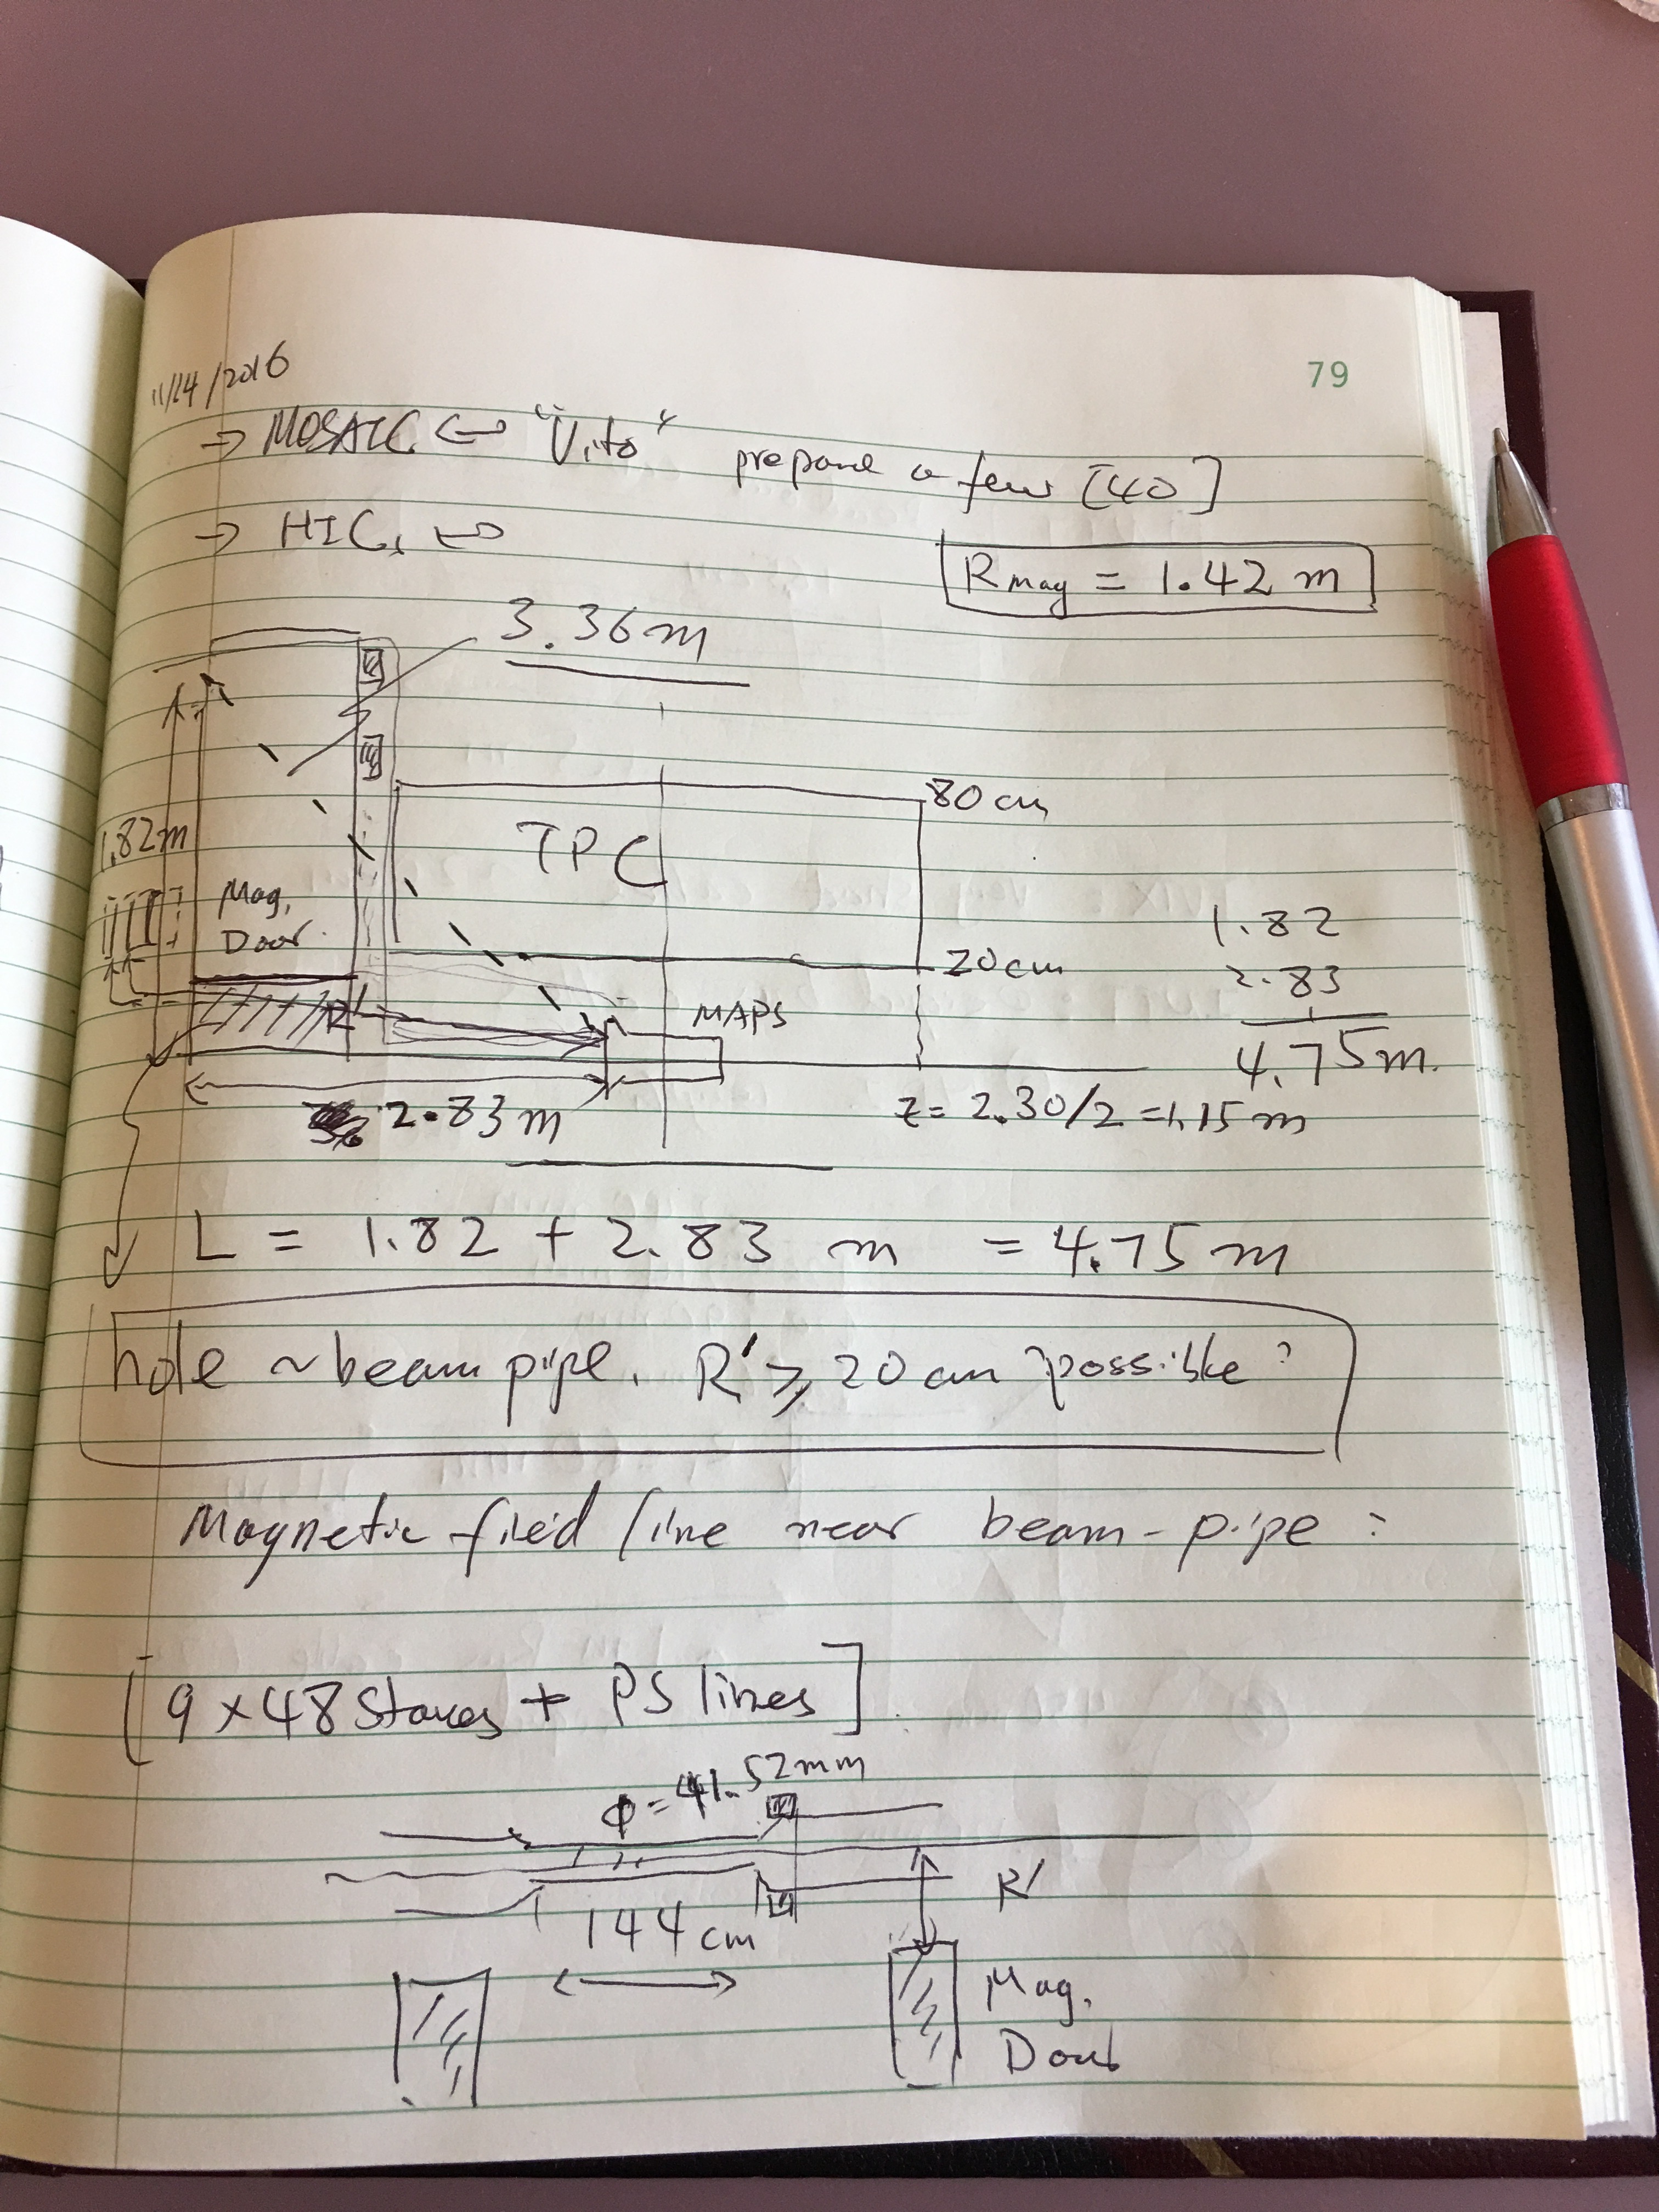 79
11/14/2016
→ MOSAIC ↔ "Vito" prepare a few [40]
→ HICs ↔
Rmag = 1.42 m
3.36m
80cm
TPC
1.82m
Mag.
Door.
20cm
R'
MAPS
1.82
2.83
4.75m.
2.83m
z= 2.30/2 =1.15m
L = 1.82 + 2.83 m = 4.75m
hole ~ beam pipe. R' ≥ 20cm possible?
Magnetic field line near beam-pipe :
[9×48 Staves + PS lines]
Φ=41.52mm
R'
144cm
Mag.
Door